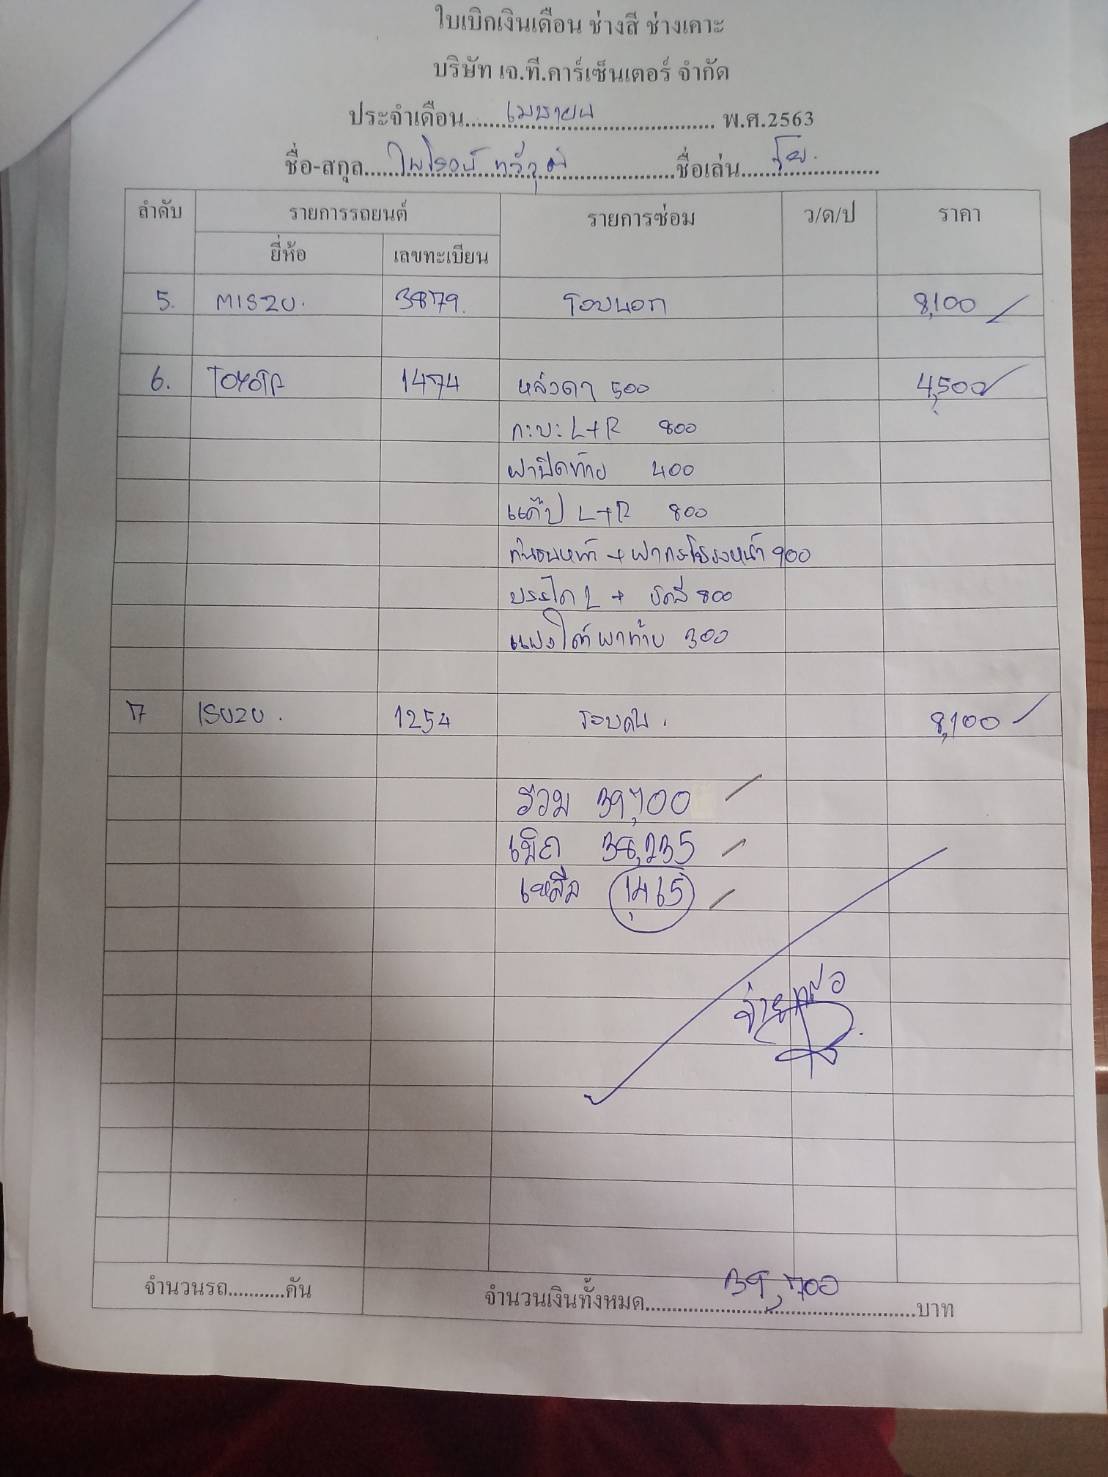 ใบเบิกเงินเดือน ช่างสี ช่างเคาะ
บริษัท เจ.ที.คาร์เซ็นเตอร์ จำกัด
ประจำเดือน.....เมษายน..... พ.ศ.2563
ชื่อ-สกุล.....ไพโรจน์.....ชื่อเล่น.....
ลำดับ รายการรถยนต์ รายการซ่อม ว/ด/ป ราคา
ยี่ห้อ เลขทะเบียน
5. MISZU. 3879. รอบนอก 8,100
6. TOYOTA 1474 หลังคา 500 4,500
กะบะ L+R 800
ฝาปิดท้าย 400
แค๊ป L+R 800
กันชนหน้า + ฝากระโปรงหน้า 900
บรรได L + ขัดสี 800
แผงใต้ฝาท้าย 300
7 ISUZU. 1254 รอบคัน. 8,100
รวม 39,700
เบิก 38,235
เหลือ 1,465
จ่ายแล้ว
จำนวนรถ...........คัน จำนวนเงินทั้งหมด.....39,700.....บาท